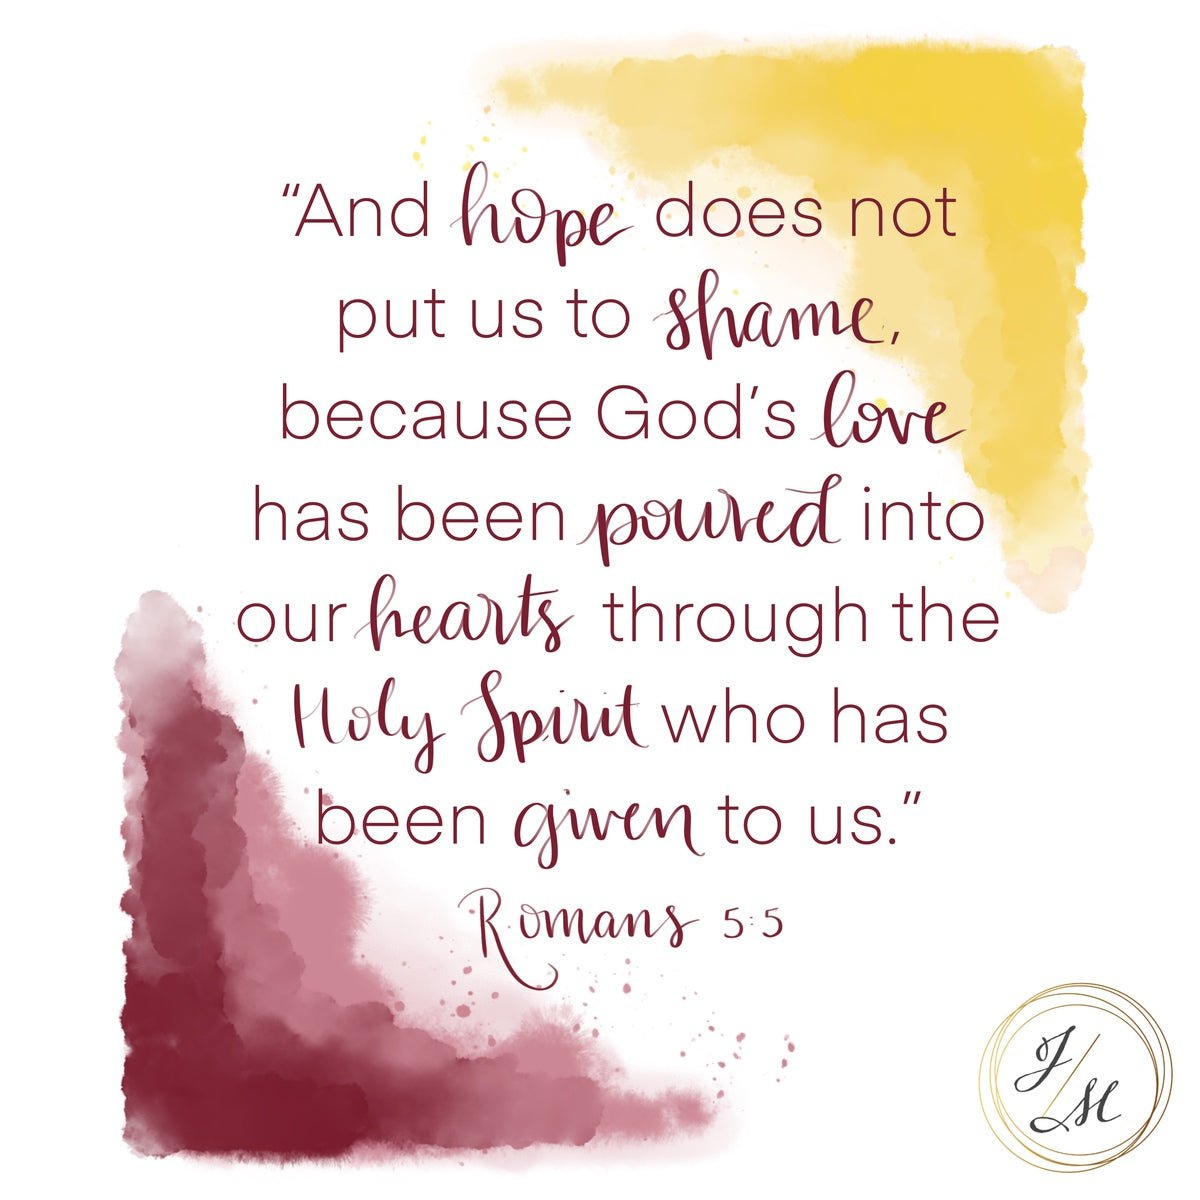 “And hope does not
put us to shame,
because God’s love
has been poured into
our hearts through the
Holy Spirit who has
been given to us.”
Romans 5:5
J/M